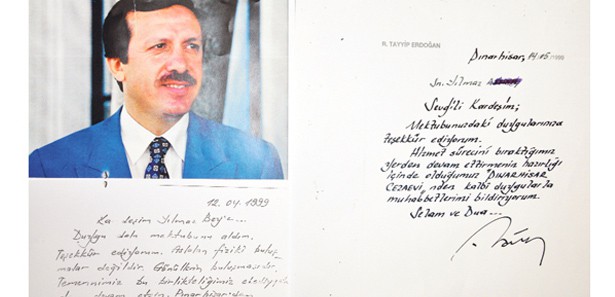 12.04.1999
Kardeşim Yılmaz Bey'e...
Duygu dolu mektubunu aldım.
Teşekkür ediyorum. Aslolan fiziki buluş-
malar değildir. Gönüllerin buluşmasıdır.
Temennimiz bu birlikteliğimiz
devam etsin. Pınarhisar'dan
R. TAYYİP ERDOĞAN
Pınarhisar, 14.05.1999
Sn. Yılmaz
Sevgili Kardeşim;
Mektubunuzdaki duygularınıza
teşekkür ediyorum.
Hizmet sürecini bıraktığımız
yerden devam ettirmenin hazırlığı
içinde olduğumuz "PINARHİSAR
CEZAEVİ"nden kalbi duygularla
muhabbetlerimi bildiriyorum.
Selam ve Dua...